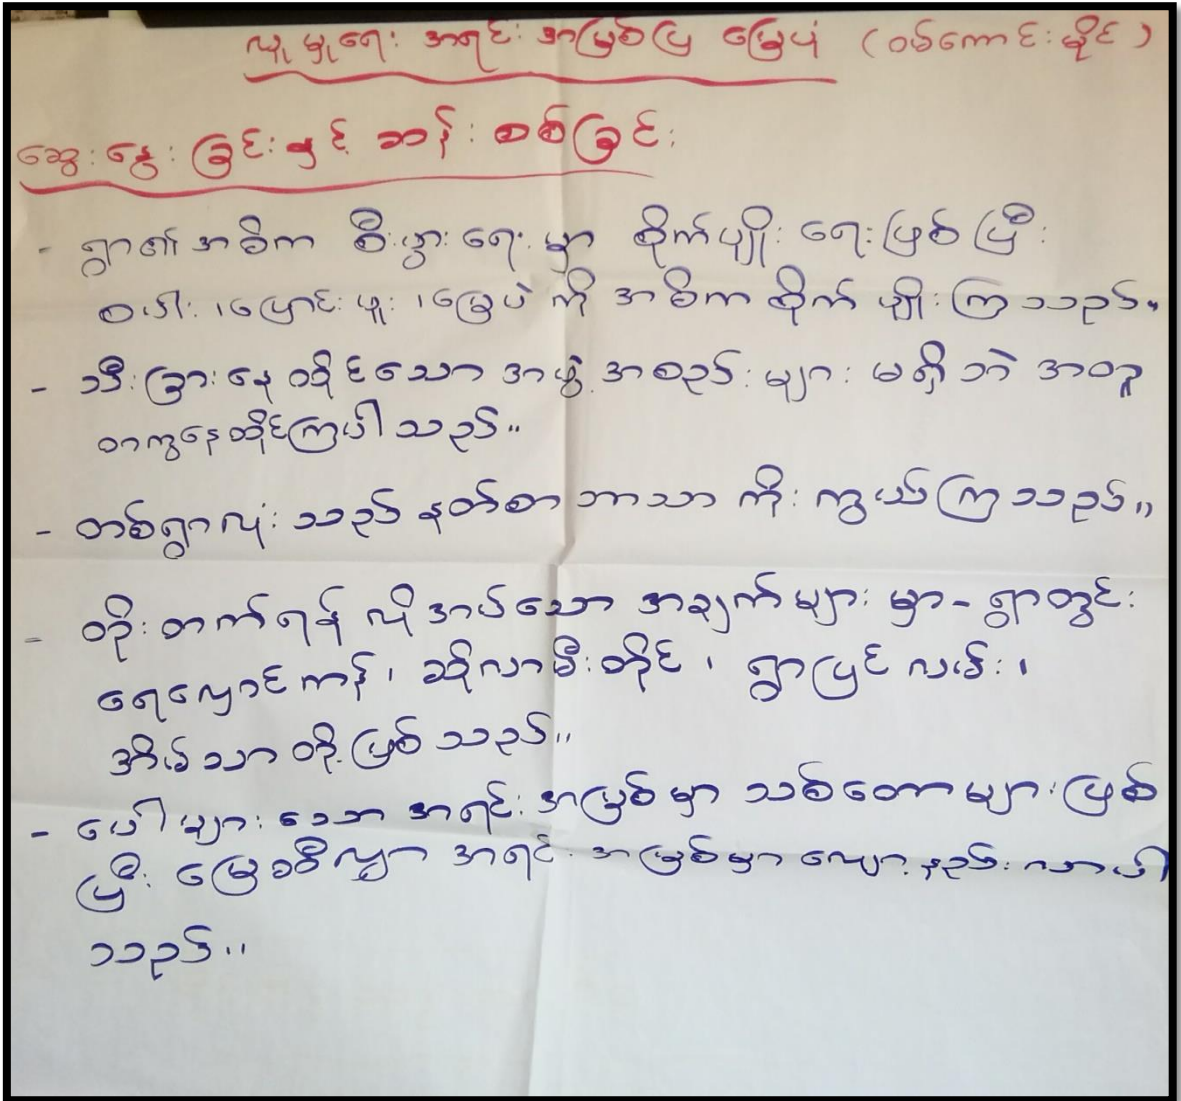 လူမှုရေး အရင်းအမြစ်ပြ မြေပုံ (ဝမ်ကောင်းမိုင်)
ဆွေးနွေးခြင်းနှင့် ဆန်းစစ်ခြင်း
- ရွာ၏ အဓိက စီးပွားရေးမှာ စိုက်ပျိုးရေးဖြစ်ပြီး
စပါး၊ ပြောင်းဖူး၊ မြေပဲ ကို အဓိက စိုက်ပျိုးကြသည်။
- သီးခြားနေထိုင်သော အဖွဲ့အစည်းများ မရှိဘဲ အတူ
တကွနေထိုင်ကြပါသည်။
- တစ်ရွာလုံးသည် နတ်စာ ဘာသာ ကိုးကွယ်ကြသည်။
- တိုးတက်ရန် လိုအပ်သော အချက်များမှာ - ရွာတွင်း
ရေလှောင်ကန်၊ ဆိုလာမီးတိုင်၊ ရွာပြင်လမ်း၊
အိမ်သာ တို့ဖြစ်သည်။
- ပေါများသော အရင်းအမြစ်မှာ သစ်တောများဖြစ်
ပြီး မြေဆီလွှာ အရင်းအမြစ်မှာ လျော့နည်းလာပါ
သည်။